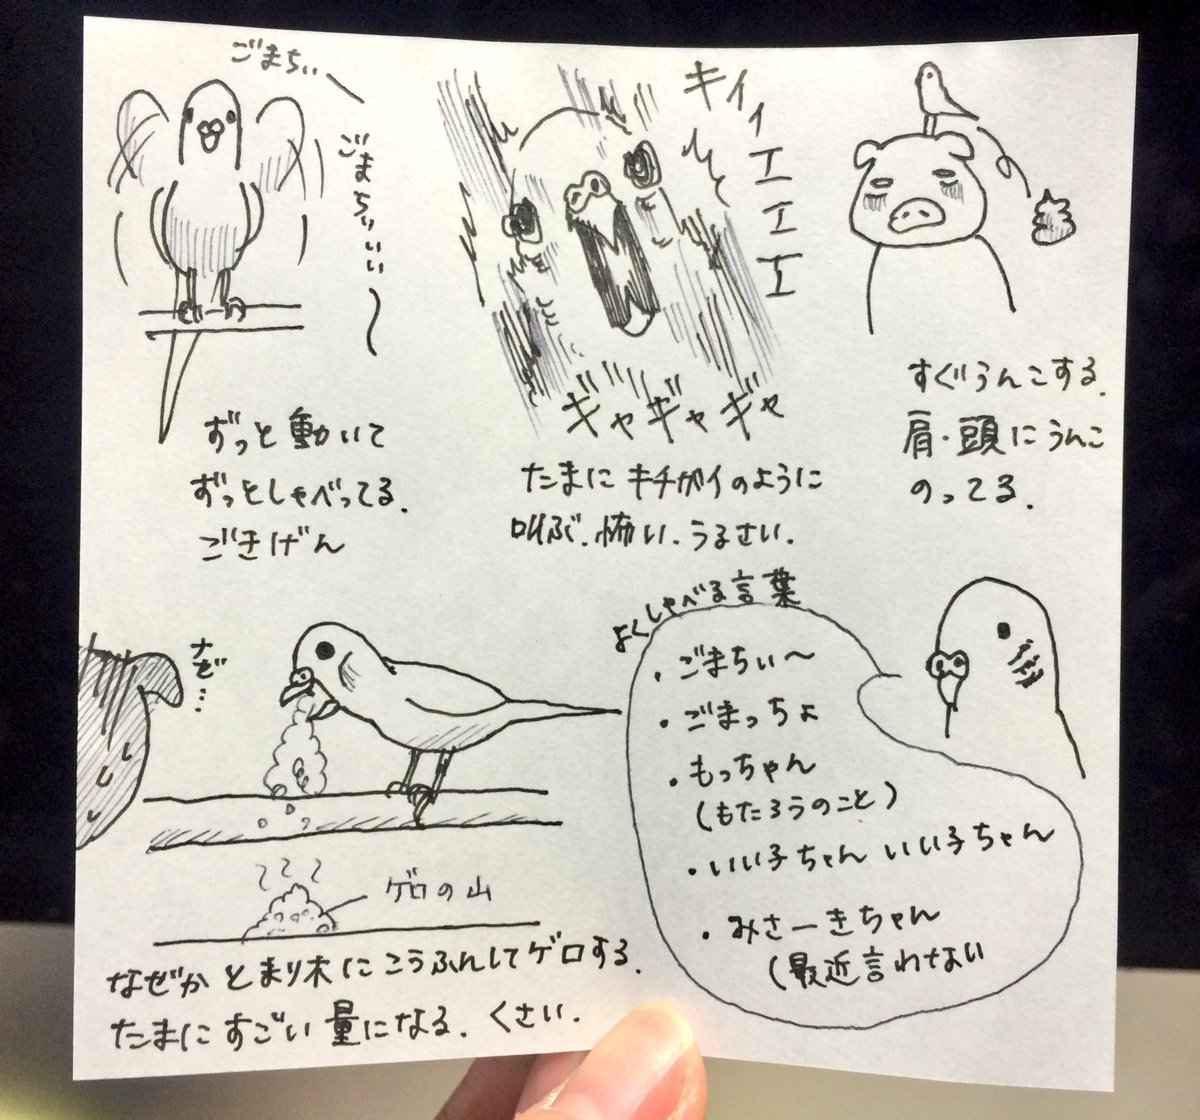 ごまちぃ〜
ごまちぃぃぃぃ〜
ずっと動いて
ずっとしゃべってる.
ごきげん
キィィエエエ
ギャギャギャ
たまに キチガイのように
叫ぶ.怖い.うるさい.
すぐうんこする.
肩・頭にうんこ
のってる.
なぜ…
ゲロの山
なぜか とまり木に こうふんしてゲロする.
たまに すごい 量になる. くさい.
よくしゃべる言葉
・ごまちぃ〜
・ごまっちょ
・もっちゃん
(もたろうのこと)
・いい子ちゃん いい子ちゃん
・みさーきちゃん
(最近言わない